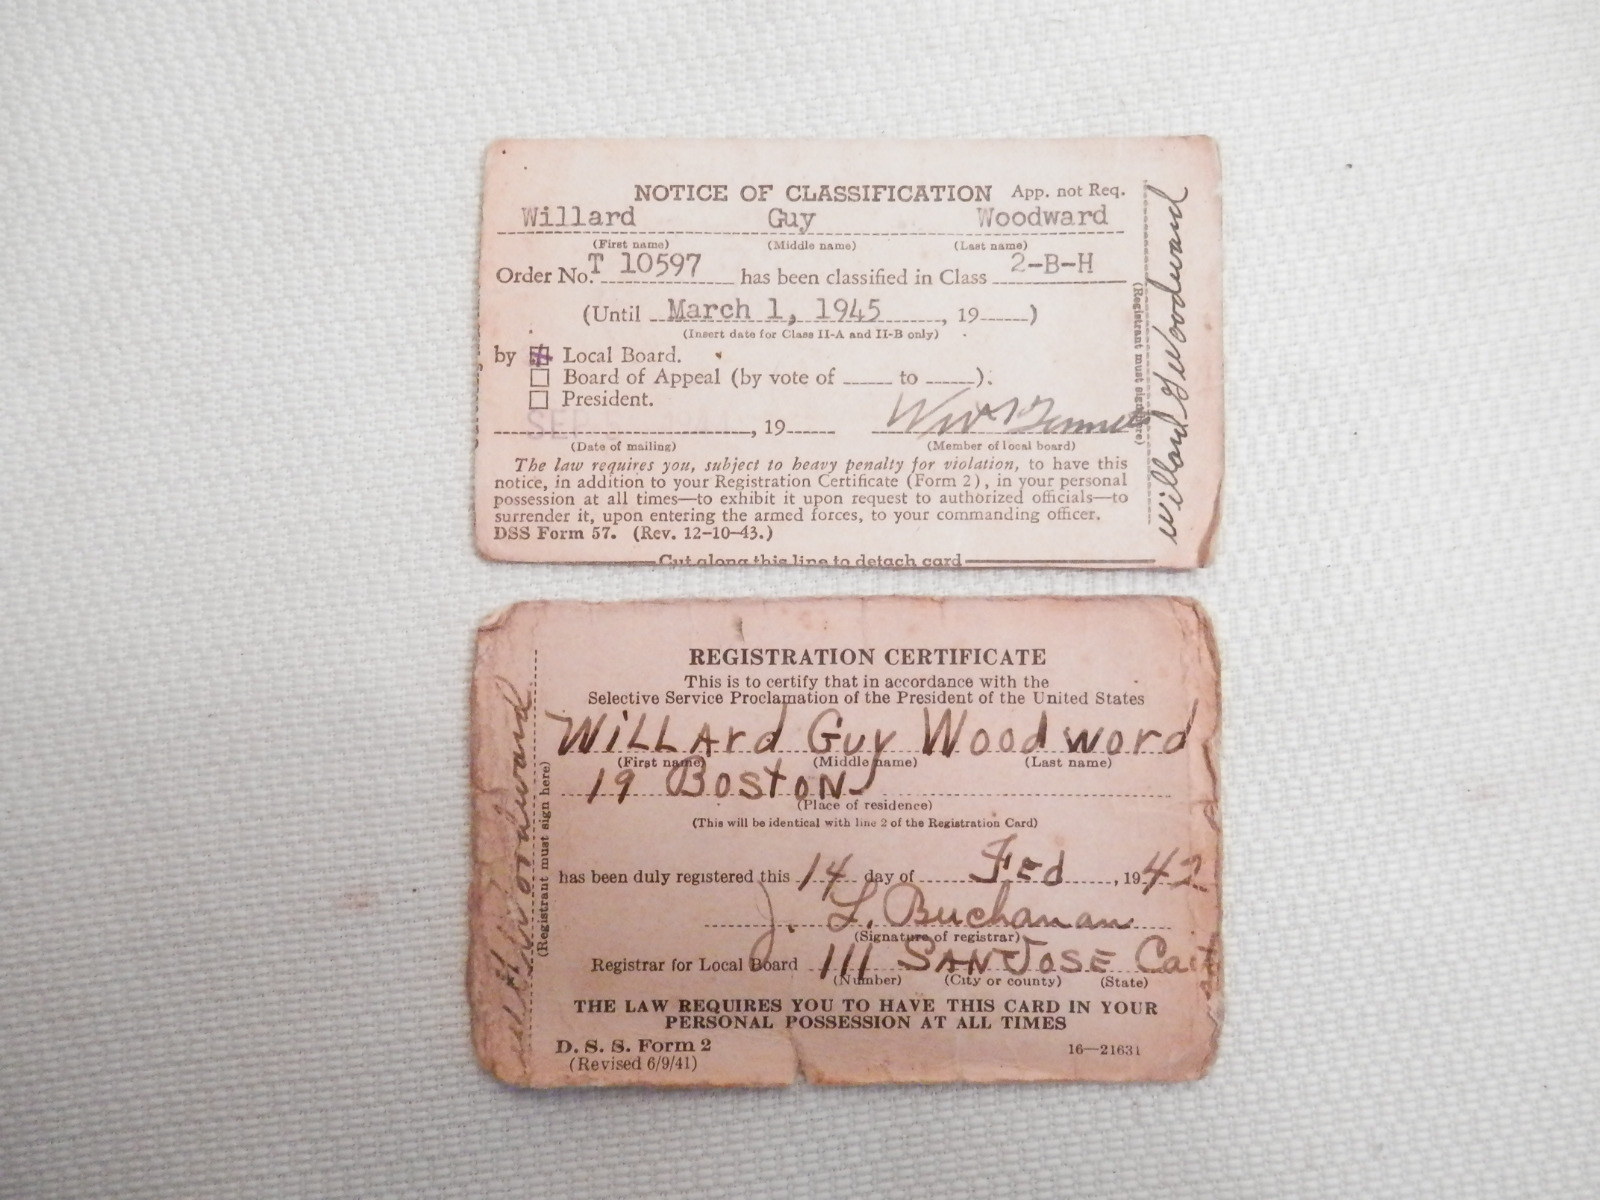 NOTICE OF CLASSIFICATION App. not Req.
Willard Guy Woodward
(First name) (Middle name) (Last name)
Order No. T 10597 has been classified in Class 2-B-H
(Until March 1, 1945, 19 )
(Insert date for Class II-A and II-B only)
by Local Board.
Board of Appeal (by vote of to ).
President.
, 19
(Date of mailing) (Member of local board)
The law requires you, subject to heavy penalty for violation, to have this
notice, in addition to your Registration Certificate (Form 2), in your personal
possession at all times—to exhibit it upon request to authorized officials—to
surrender it, upon entering the armed forces, to your commanding officer.
DSS Form 57. (Rev. 12-10-43.)
Cut along this line to detach card
(Registrant must sign here)
Willard G Woodward
REGISTRATION CERTIFICATE
This is to certify that in accordance with the
Selective Service Proclamation of the President of the United States
WiLLArd Guy Woodword
(First name) (Middle name) (Last name)
19 BostoN
(Place of residence)
(This will be identical with line 2 of the Registration Card)
has been duly registered this 14 day of FEd, 1942
J. L. Buchanan
(Signature of registrar)
Registrar for Local Board 111 SAN JOSE
(Number) (City or county) (State)
THE LAW REQUIRES YOU TO HAVE THIS CARD IN YOUR
PERSONAL POSSESSION AT ALL TIMES
D. S. S. Form 2
(Revised 6/9/41)
16—21631
(Registrant must sign here)
Woodward